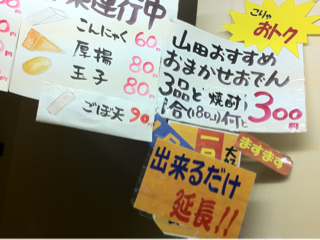 運行中
こんにゃく 60円
厚揚 80円
玉子 80円
ごぼ天 90円
こりゃ
おトク
山田おすすめ
おまかせおでん
3品と焼酎
1合(180㎖)付で
300円
ますます
出来るだけ
延長!!